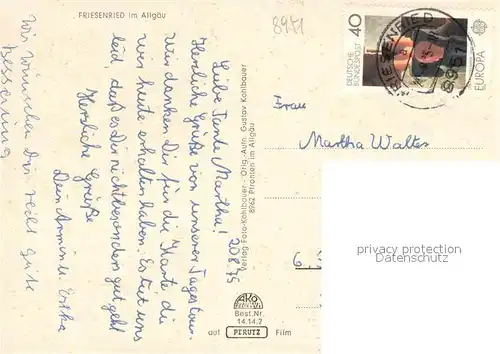 FRIESENRIED im Allgäu
8951
20.8.75
Liebe Tante Martha!
Herzliche Grüße von unserer Tagestour.
Wir danken Dir für die Karte die
wir heute erhalten haben. Es tut uns
leid, daß es Dir nicht besonders gut geht
Herzliche Grüße
Dein Armin u. Erika
Wir wünschen Dir recht gute
Besserung
Verlag Foto-Kohlbauer · Orig.-Aufn. Gustav Kohlbauer
8962 Pfronten im Allgäu
AKO
Best. Nr.
14.14.2
auf PERUTZ Film
40
DEUTSCHE
BUNDESPOST
EUROPA
FRIESENRIED
8951
Frau
Martha Walter
privacy protection
Datenschutz